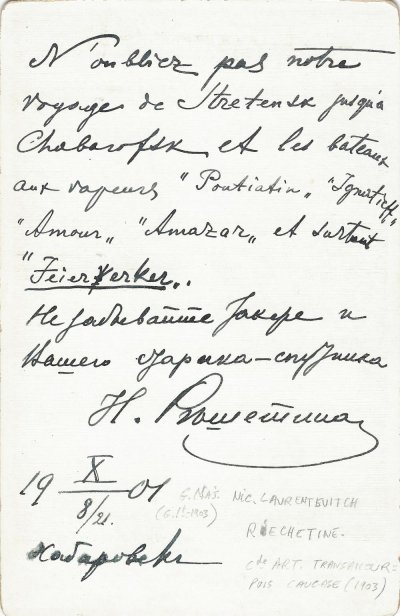 N'oubliez pas notre
voyage de Stretensk jusqu'à
Chabarofsk et les bateaux
aux vapeurs "Poutiatin„ "Ignatieff„
"Amour„ "Amazar„ et surtout
"Feierwerker„.
Не забывайте Гакере и
Вашего старика-спутника
Н. Рыщетина
19 X 01
8/21.
Хабаровскъ
NIC. LAURENTEVITCH
(G. Lt - 1903)
RIECHETINE.
Cde ART. TRANSAMOUR=
POIS CAUCASE (1903)